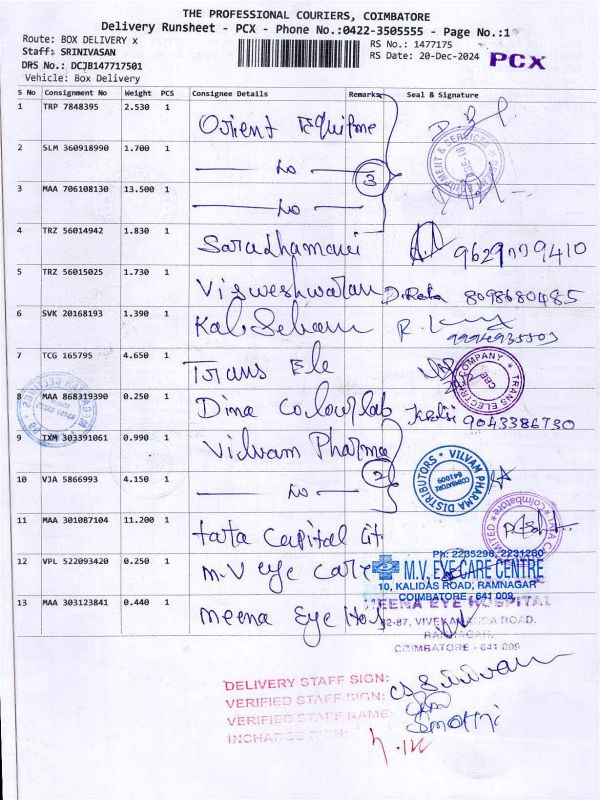 THE PROFESSIONAL COURIERS, COIMBATORE
Delivery Runsheet - PCX - Phone No.:0422-3505555 - Page No.:1
Route: BOX DELIVERY x
Staff: SRINIVASAN
DRS No.: DCJB147717501
Vehicle: Box Delivery
RS No.: 1477175
RS Date: 20-Dec-2024
PCX
S No Consignment No Weight PCS Consignee Details Remarks Seal & Signature
1 TRP 7848395 2.530 1 Orient Equipme
2 SLM 360918990 1.700 1 — do —
3
3 MAA 706108130 13.500 1 — do —
4 TRZ 56014942 1.830 1 Saradhamani
5 TRZ 56015025 1.730 1 Visweshwaran 8098680485
6 SVK 20168193 1.390 1
7 TCG 165795 4.650 1 Trans Ele
TRANS ELECTRI COMPANY
CBE
8 MAA 868319390 0.250 1 Dima Colour lab 9043386730
9 IXM 303391061 0.990 1 Vilvam Pharma
2
VILVAM PHARMA DISTRIBUTORS
COIMBATORE
641009
10 VJA 5866993 4.150 1 — do —
11 MAA 301087104 11.200 1 tata Capital
12 VPL 522093420 0.250 1 m.v eye care
Ph: 2235296, 2231260
M.V. EYE CARE CENTRE
10, KALIDAS ROAD, RAMNAGAR
COIMBATORE 641 009.
13 MAA 303123841 0.440 1 meena Eye Hos
MEENA EYE HOSPITAL
82-87, VIVEKANANDA ROAD.
RAMNAGAR,
COIMBATORE - 641 009
DELIVERY STAFF SIGN:
VERIFIED STAFF SIGN:
VERIFIED STAFF NAME:
INCHARGE SIGN: